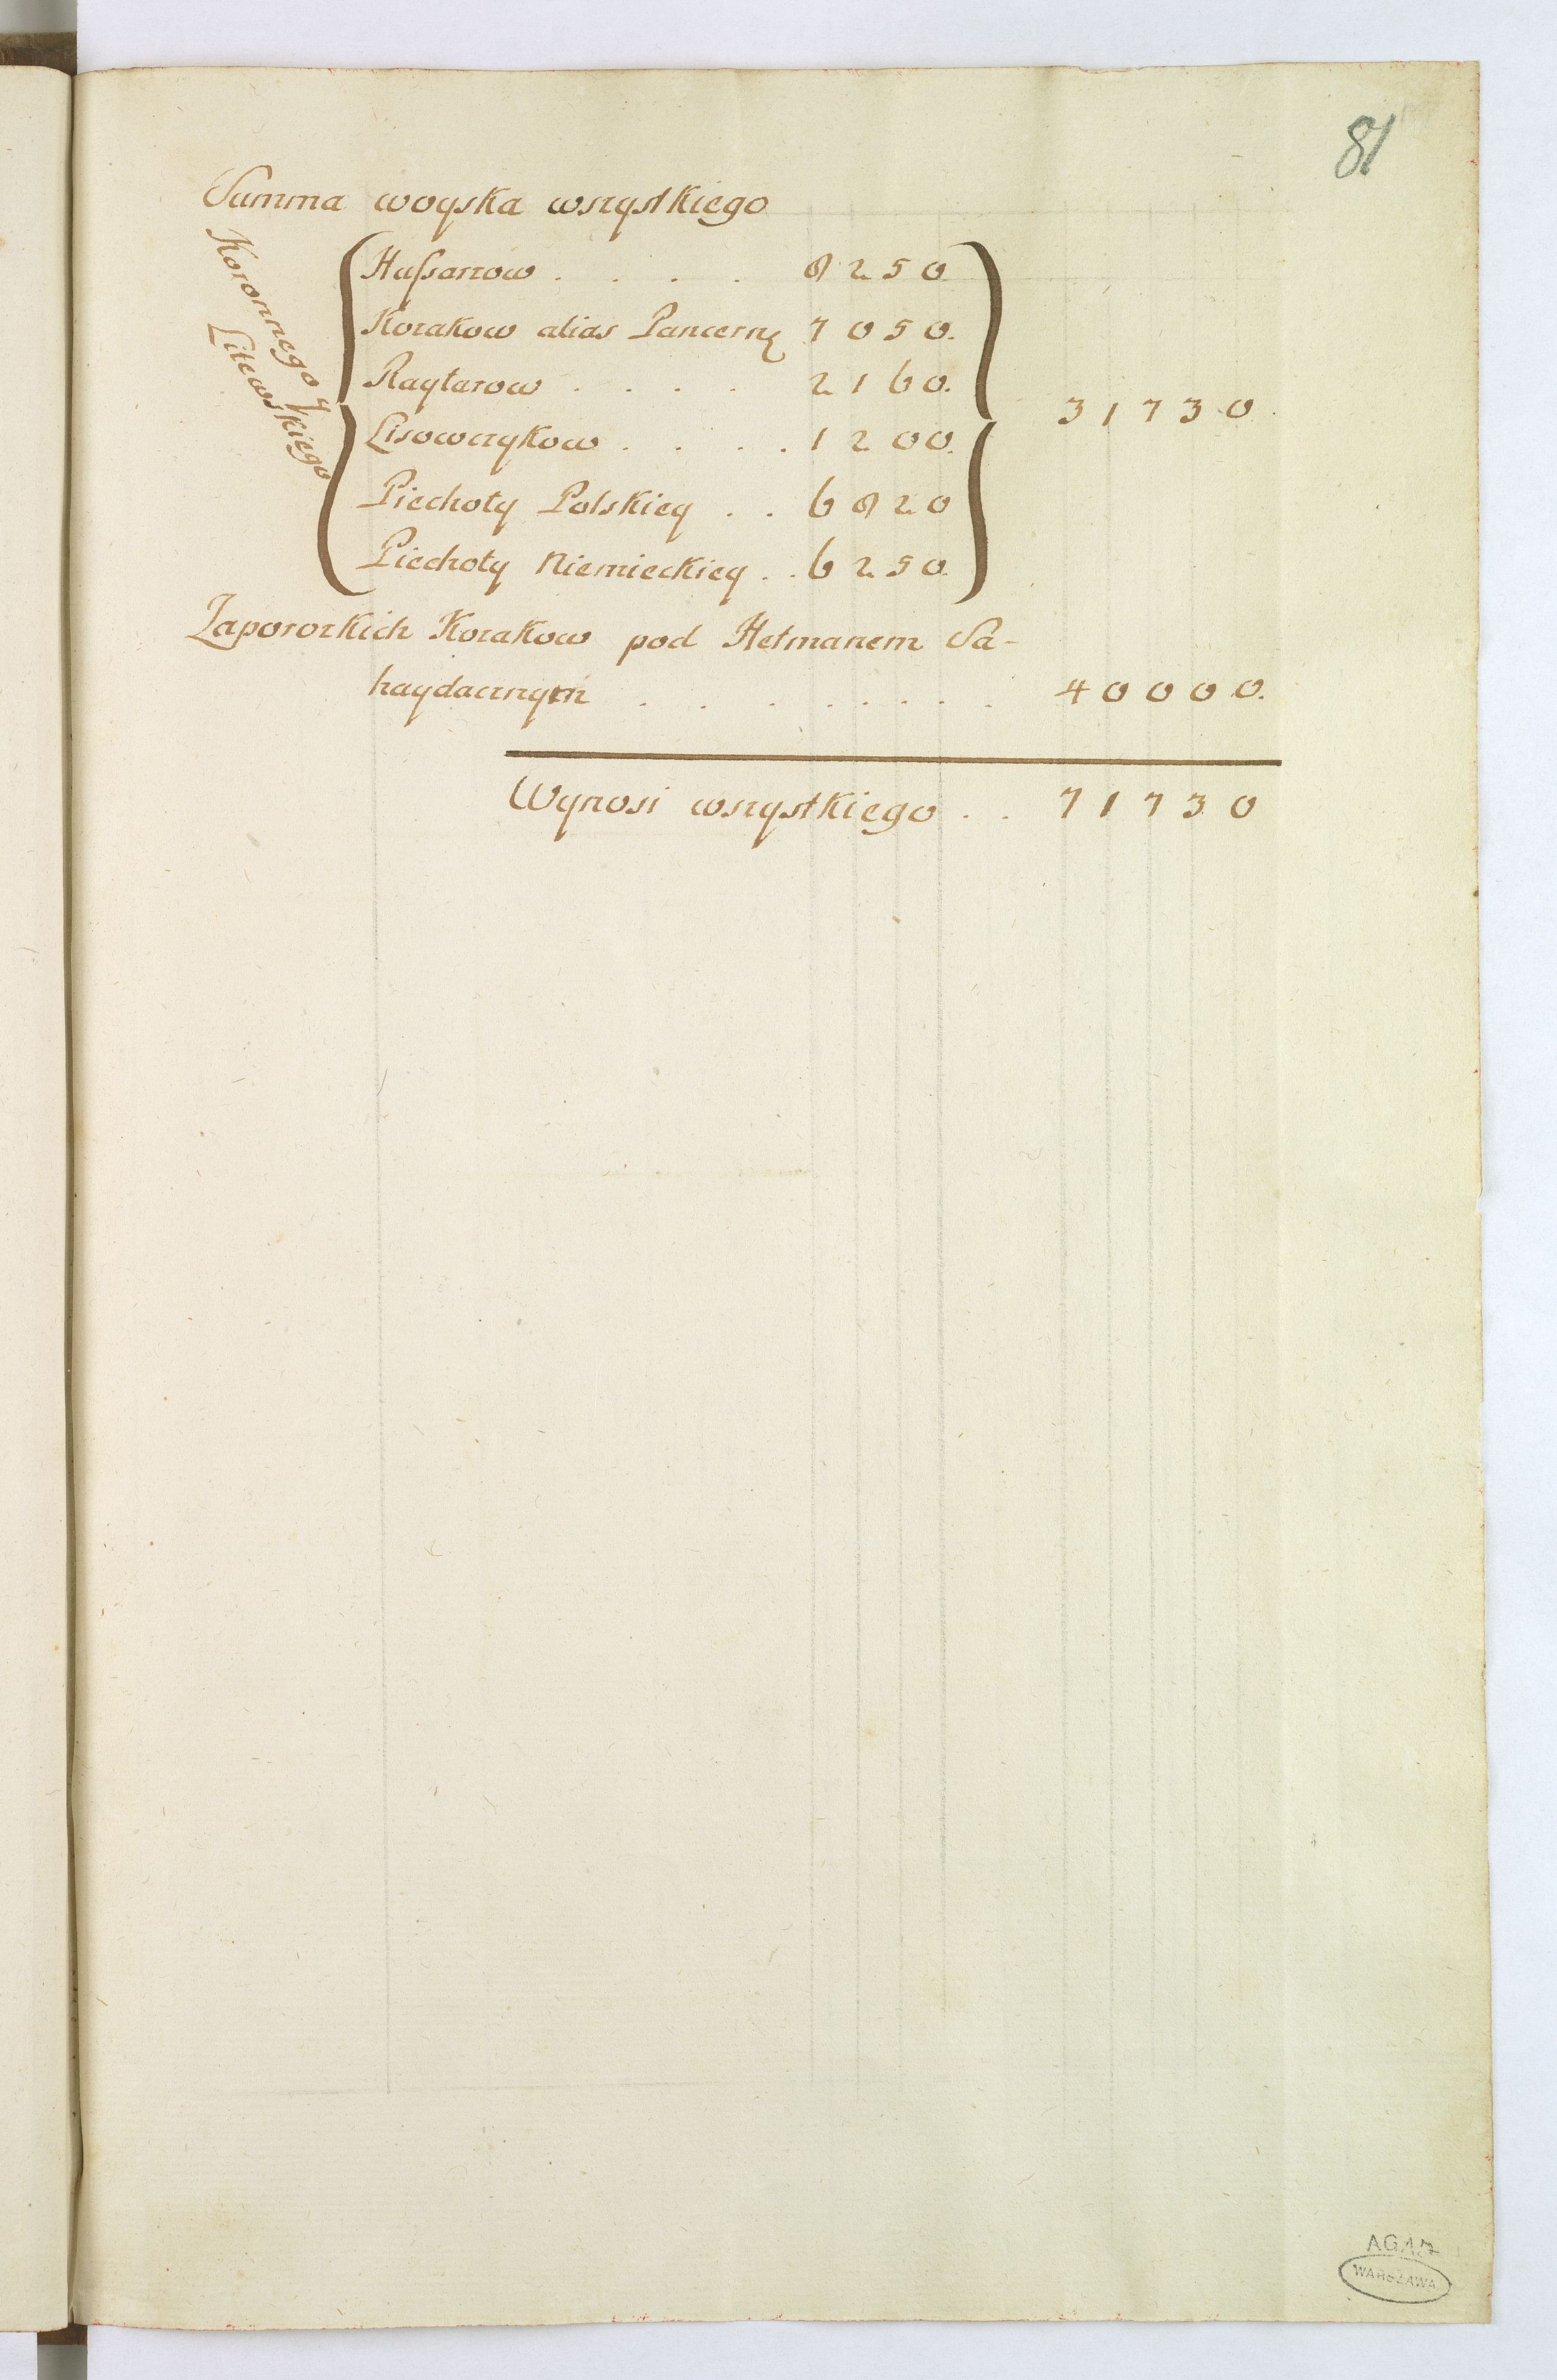 81
Summa woyska wszystkiego
Koronnego y
Litewskiego
Hussarzow . . . . 8250
Kozakow alias Pancerny 7050.
Raytarow . . . . 2160.
Lisowczykow . . . . 1200.
Piechoty Polskiey . . 6820
Piechoty Niemieckiey . . 6250.
31730.
Zaporozkich Kozakow pod Hetmanem Sa-
haydacznym . . . . . . . . 40000.
Wynosi wszystkiego . . 71730
AGAD
WARSZAWA